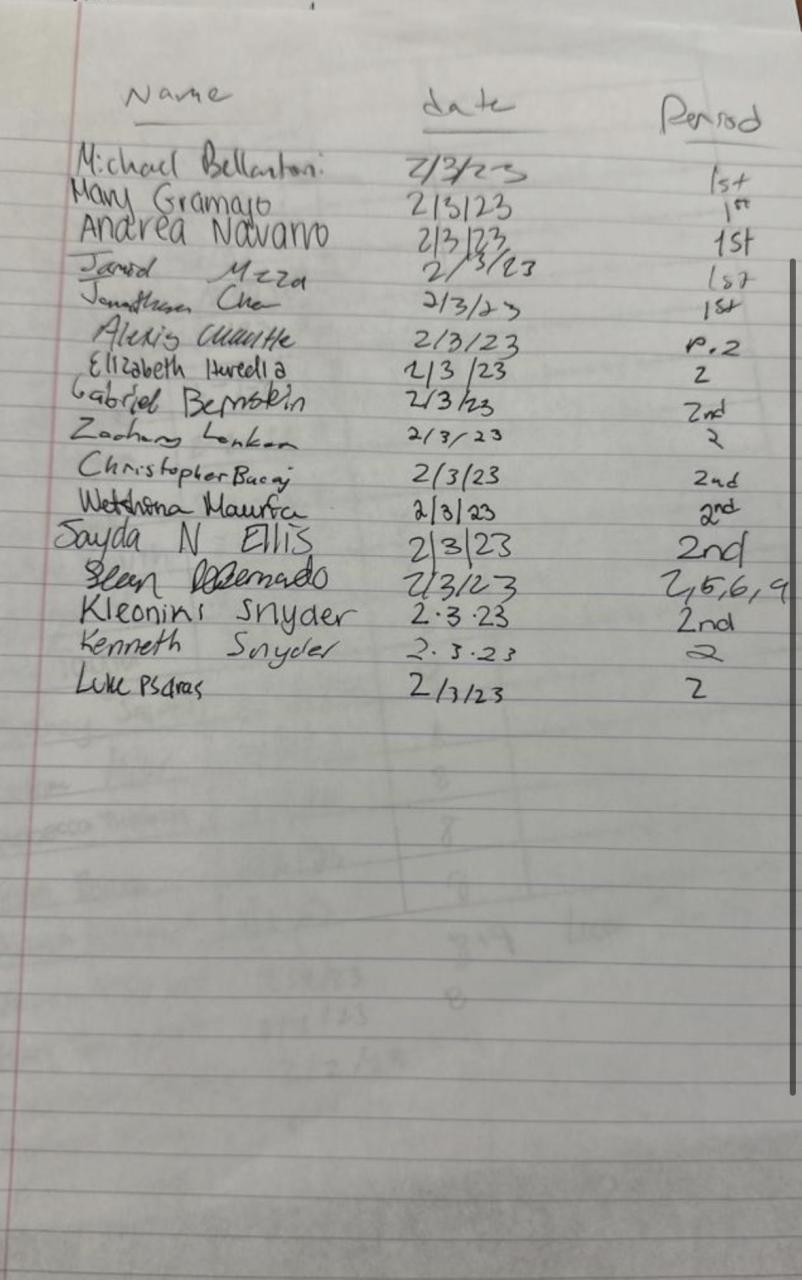 Name date Period
Michael Bellantoni 2/3/23 1st
Mary Gramajo 2/3/23 1st
Andrea Navarro 2/3/23 1st
2/3/23 1st
Jonathan 2/3/23 1st
Alexis 2/3/23 P.2
Elizabeth Heredia 2/3/23 2
Gabriel Bernstein 2/3/23 2nd
Zachary 2/3/23 2
Christopher Bacaj 2/3/23 2nd
2/3/23 2nd
Sayda N Ellis 2/3/23 2nd
Sean 2/3/23 2,5,6,9
Kleonini Snyder 2.3.23 2nd
Kenneth Snyder 2.3.23 2
Luke Psaras 2/3/23 2